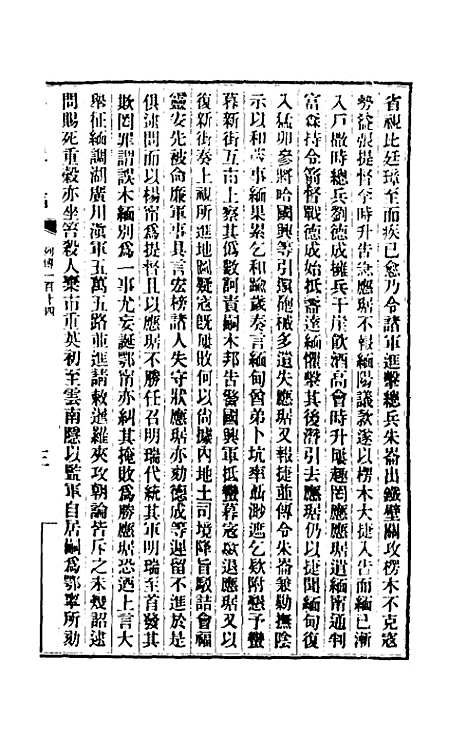 省視比廷璋至而疾已愈乃令諸軍進擊總兵朱崙出鐵壁關攻楞木不克寇
勢益張提督李時升告急應琚不報緬陽議款遂以楞木大捷入告而緬已漸
入戶撒時總兵劉德成擁兵干崖飲酒高會時升屢趣罔應應琚遣緬甯通判
富森持令箭督戰德成始抵盞達緬懼擊其後潛引去應琚仍以捷聞緬甸復
入猛卯參將哈國興等引還砲械多遺失應琚又報捷並傳令朱崙兼勦撫陰
示以和蕆事緬果累乞和踰歲奏言緬甸酋弟卜坑率渺遮乞欵附懇予蠻
暮新街互市上察其僞數詞責嗣木邦告警國興軍抵蠻暮寇欻退應琚又以
復新街奏上視所進地圖疑寇既屢敗何以尚據內地土司境降旨駁詰會福
靈安先被命廉軍事具言宏榜諸人失守狀應琚亦劾德成等遲留不進於是
俱逮問而以楊甯爲提督且以應琚不勝任召明瑞代統其軍明瑞至首發其
欺罔罪謂誤木緬別爲一事尤妄誕鄂甯亦糾其掩敗爲勝應琚恐迺上言大
舉征緬調湖廣川滇軍五萬五路並進請敕暹羅夾攻朝論皆斥之未幾詔逮
問賜死重穀亦坐笞殺人棄市重英初至雲南隱以監軍自居嗣爲鄂寧所劾
列傳一百十四
三